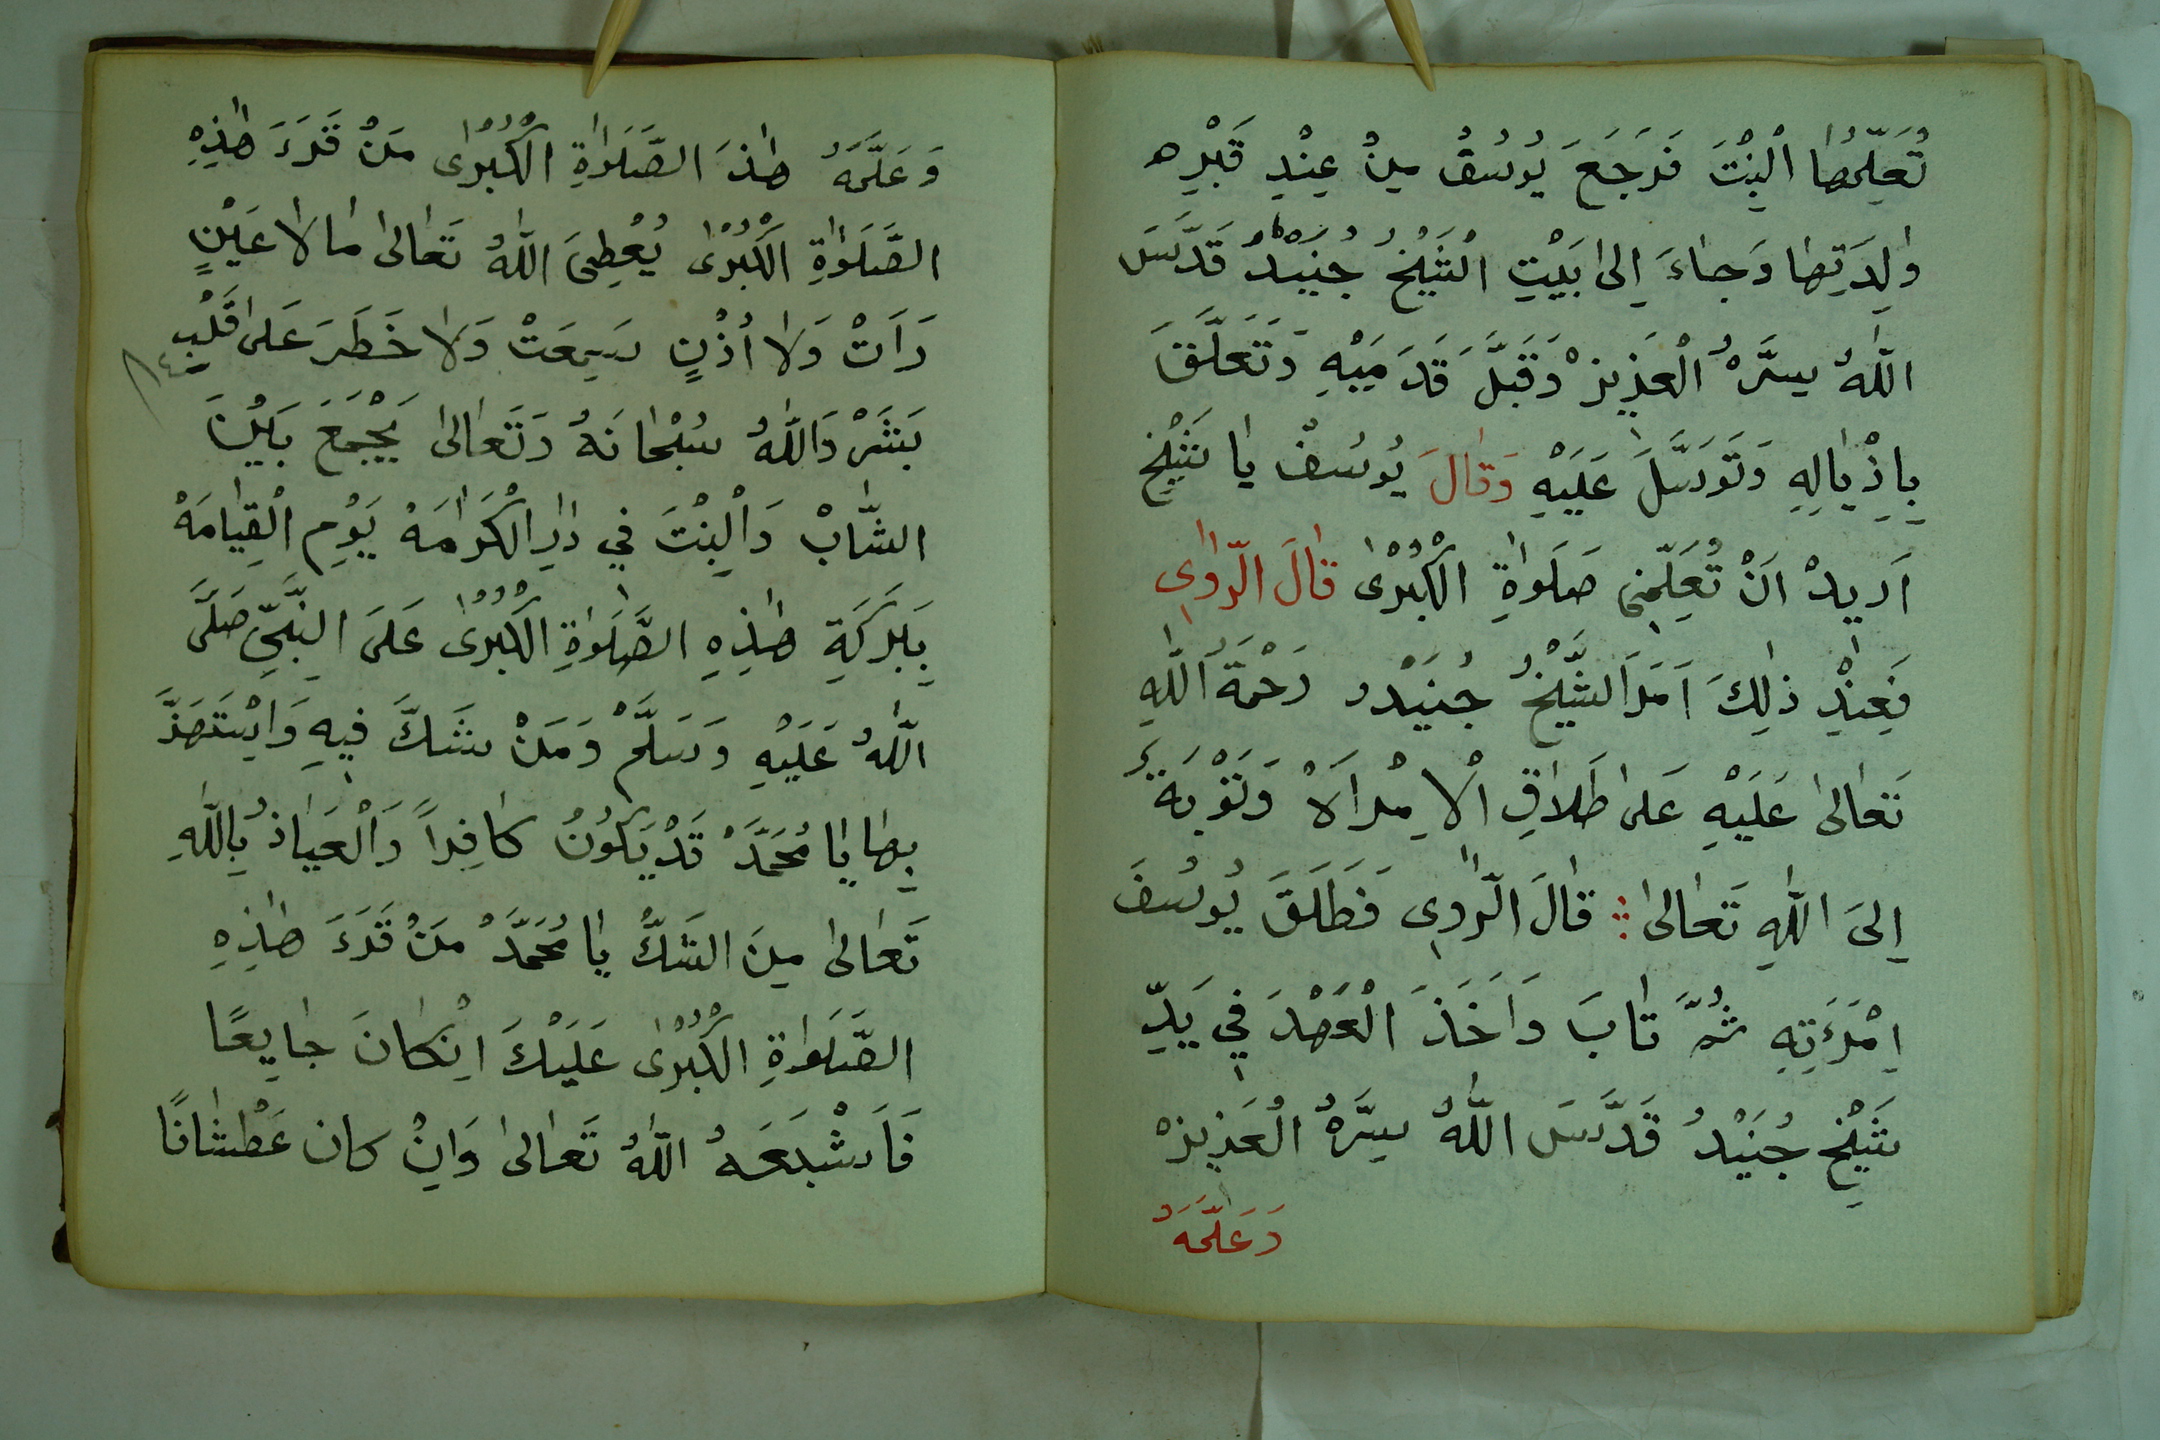 تُعَلِّمُهَا الْبِنْتَ فَرَجَعَ يُوسُفُ مِنْ عِنْدِ قَبْرِه
وٰلِدَتِهٰا وَجٰاءَ اِلىٰ بَيْتِ الْشَيْخُ جُنَيْدُ قَدَّسَ
اللّٰهُ سِرَّهُ الْعَزِيزْ وَقَبَّلَ قَدَمَيْهِ وَتَعَلَّقَ
بِاِذْيٰالِهِ وَتَوَسَّلَ عَلَيْهِ وَقٰالَ يُوسُفْ يٰا شَيْخِ
اَريدْ اَنْ تُعَلِّمْنِى صَلَوٰاةِ الْكُبْرٰى قٰالَ الرّٰاوِى
فَعِنْدِ ذٰلِكَ اَمَرَ الشَّيْخُ جُنَيْدُ رَحْمَةُ اللّٰهِ
تَعٰالىٰ عَلَيْهِ عَلىٰ طَلَاقِ الْاِمْرَاَةْ وَتَوْبَةً
اِلىَ اللّٰهِ تَعٰالىٰ ∴ قٰالَ الرّٰاوِى فَطَلَّقَ يُوسُفَ
اِمْرَءَتِهِ ثُمَّ تٰابَ وَاَخَذَ الْعَهْدَ فِي يَدِّ
شَيْخِ جُنَيْدُ قَدَّسَ اللّٰهُ سِرَّهُ الْعَزِيزْ
وَعَلَّمَهُ
وَعَلَّمَهُ هٰذَ الصَّلَوٰاةِ الْكُبْرٰى مَنْ قَرَءَ هٰذِهِ
الصَّلَوٰاةِ الْكُبْرٰى يُعْطِىَ اللّٰهُ تَعٰالىٰ مٰا لٰا عَيْنٍ
رَاَتْ وَلٰا اُذْنٍ سَمِعَتْ وَلٰا خَطَرَ عَلىٰ قَلْبِ
بَشَرْ وَاللّٰهُ سُبْحٰانَهُ وَتَعٰالىٰ يَجْمَعَ بَيْنَ
الشّٰابْ وَالْبِنْتَ فِي دٰارِ الْكَرٰامَةْ يَوْمِ الْقِيٰامَةْ
بِبَرَكَةِ هٰذِهِ الصَّلَوٰاةِ الْكُبْرٰى عَلىَ النَّبِيِّ صَلَّى
اللّٰهُ عَلَيْهِ وَسَلَّمْ وَمَنْ شَكَّ فِيهِ وَاسْتَهَزَّ
بِهٰا يٰا مُحَمَّدْ قَدْ يَكُونُ كٰافِراً وَالْعَيَاذُ بِاللّٰهِ
تَعٰالىٰ مِنَ الشَكُّ يٰا مُحَمَّدْ مَنْ قَرَءَ هٰذِهِ
الصَّلَوٰاةِ الْكُبْرٰى عَلَيْكَ اِنْكٰانَ جٰايِعًا
فَاَشْبَعَهُ اللّٰهُ تَعٰالىٰ وَاِنْ كان عَطْشٰانًا